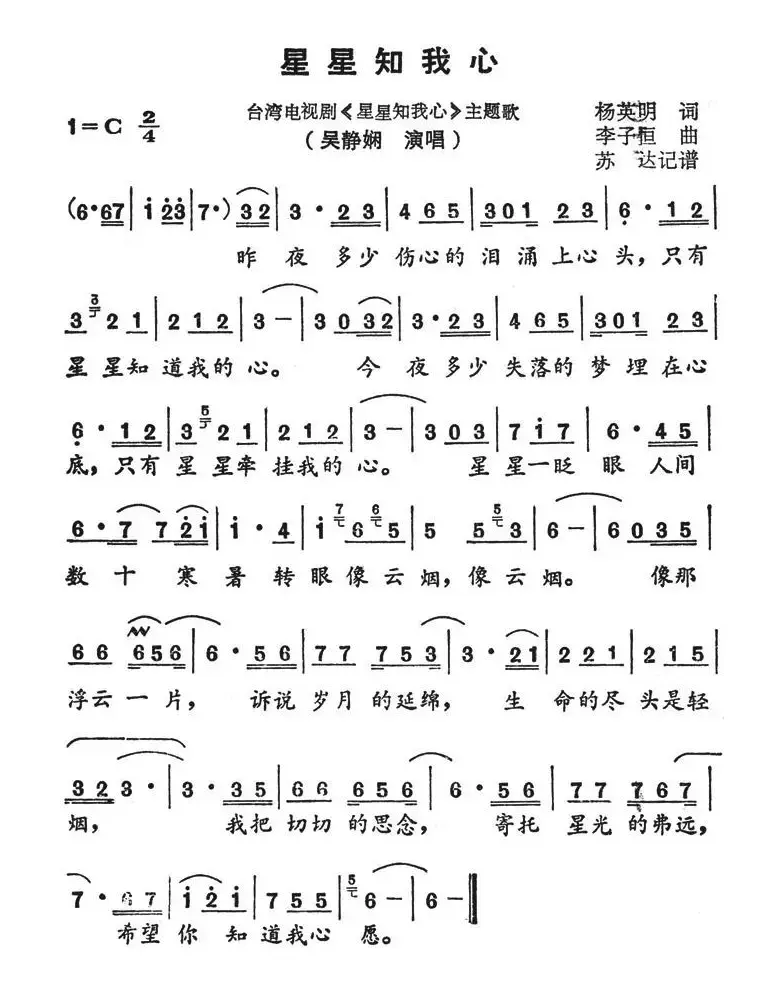 星星知我心
1=C 2/4
台湾电视剧《星星知我心》主题歌
(吴静娴 演唱)
杨英明 词
李子恒 曲
苏 达记谱
(6·67|i 23|7·) 32|3·23|465|301 23|6·12|
昨夜多少伤心的泪涌上心头,只有
3 21|212|3-|3032|3·23|465|301 23|
星星知道我的心。今夜多少失落的梦埋在心
6·12|3 21|212|3-|303|7i7|6·45|
底,只有星星牵挂我的心。星星一眨眼人间
6·7 72i|i·4|i 65|5 53|6-|6035|
数十寒暑转眼像云烟,像云烟。像那
66 656|6·56|77 753|3·21|221|215|
浮云一片,诉说岁月的延绵,生命的尽头是轻
323·|3·35|66 656|6·56|77 767|
烟,我把切切的思念,寄托星光的弗远,
7·67|i2i|755|6-|6-‖
希望你知道我心愿。